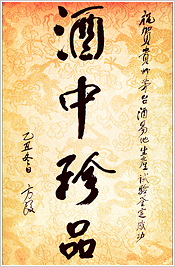 祝贺贵州茅台酒易地生産试验鉴定成功
酒中珍品
乙丑冬日 方毅